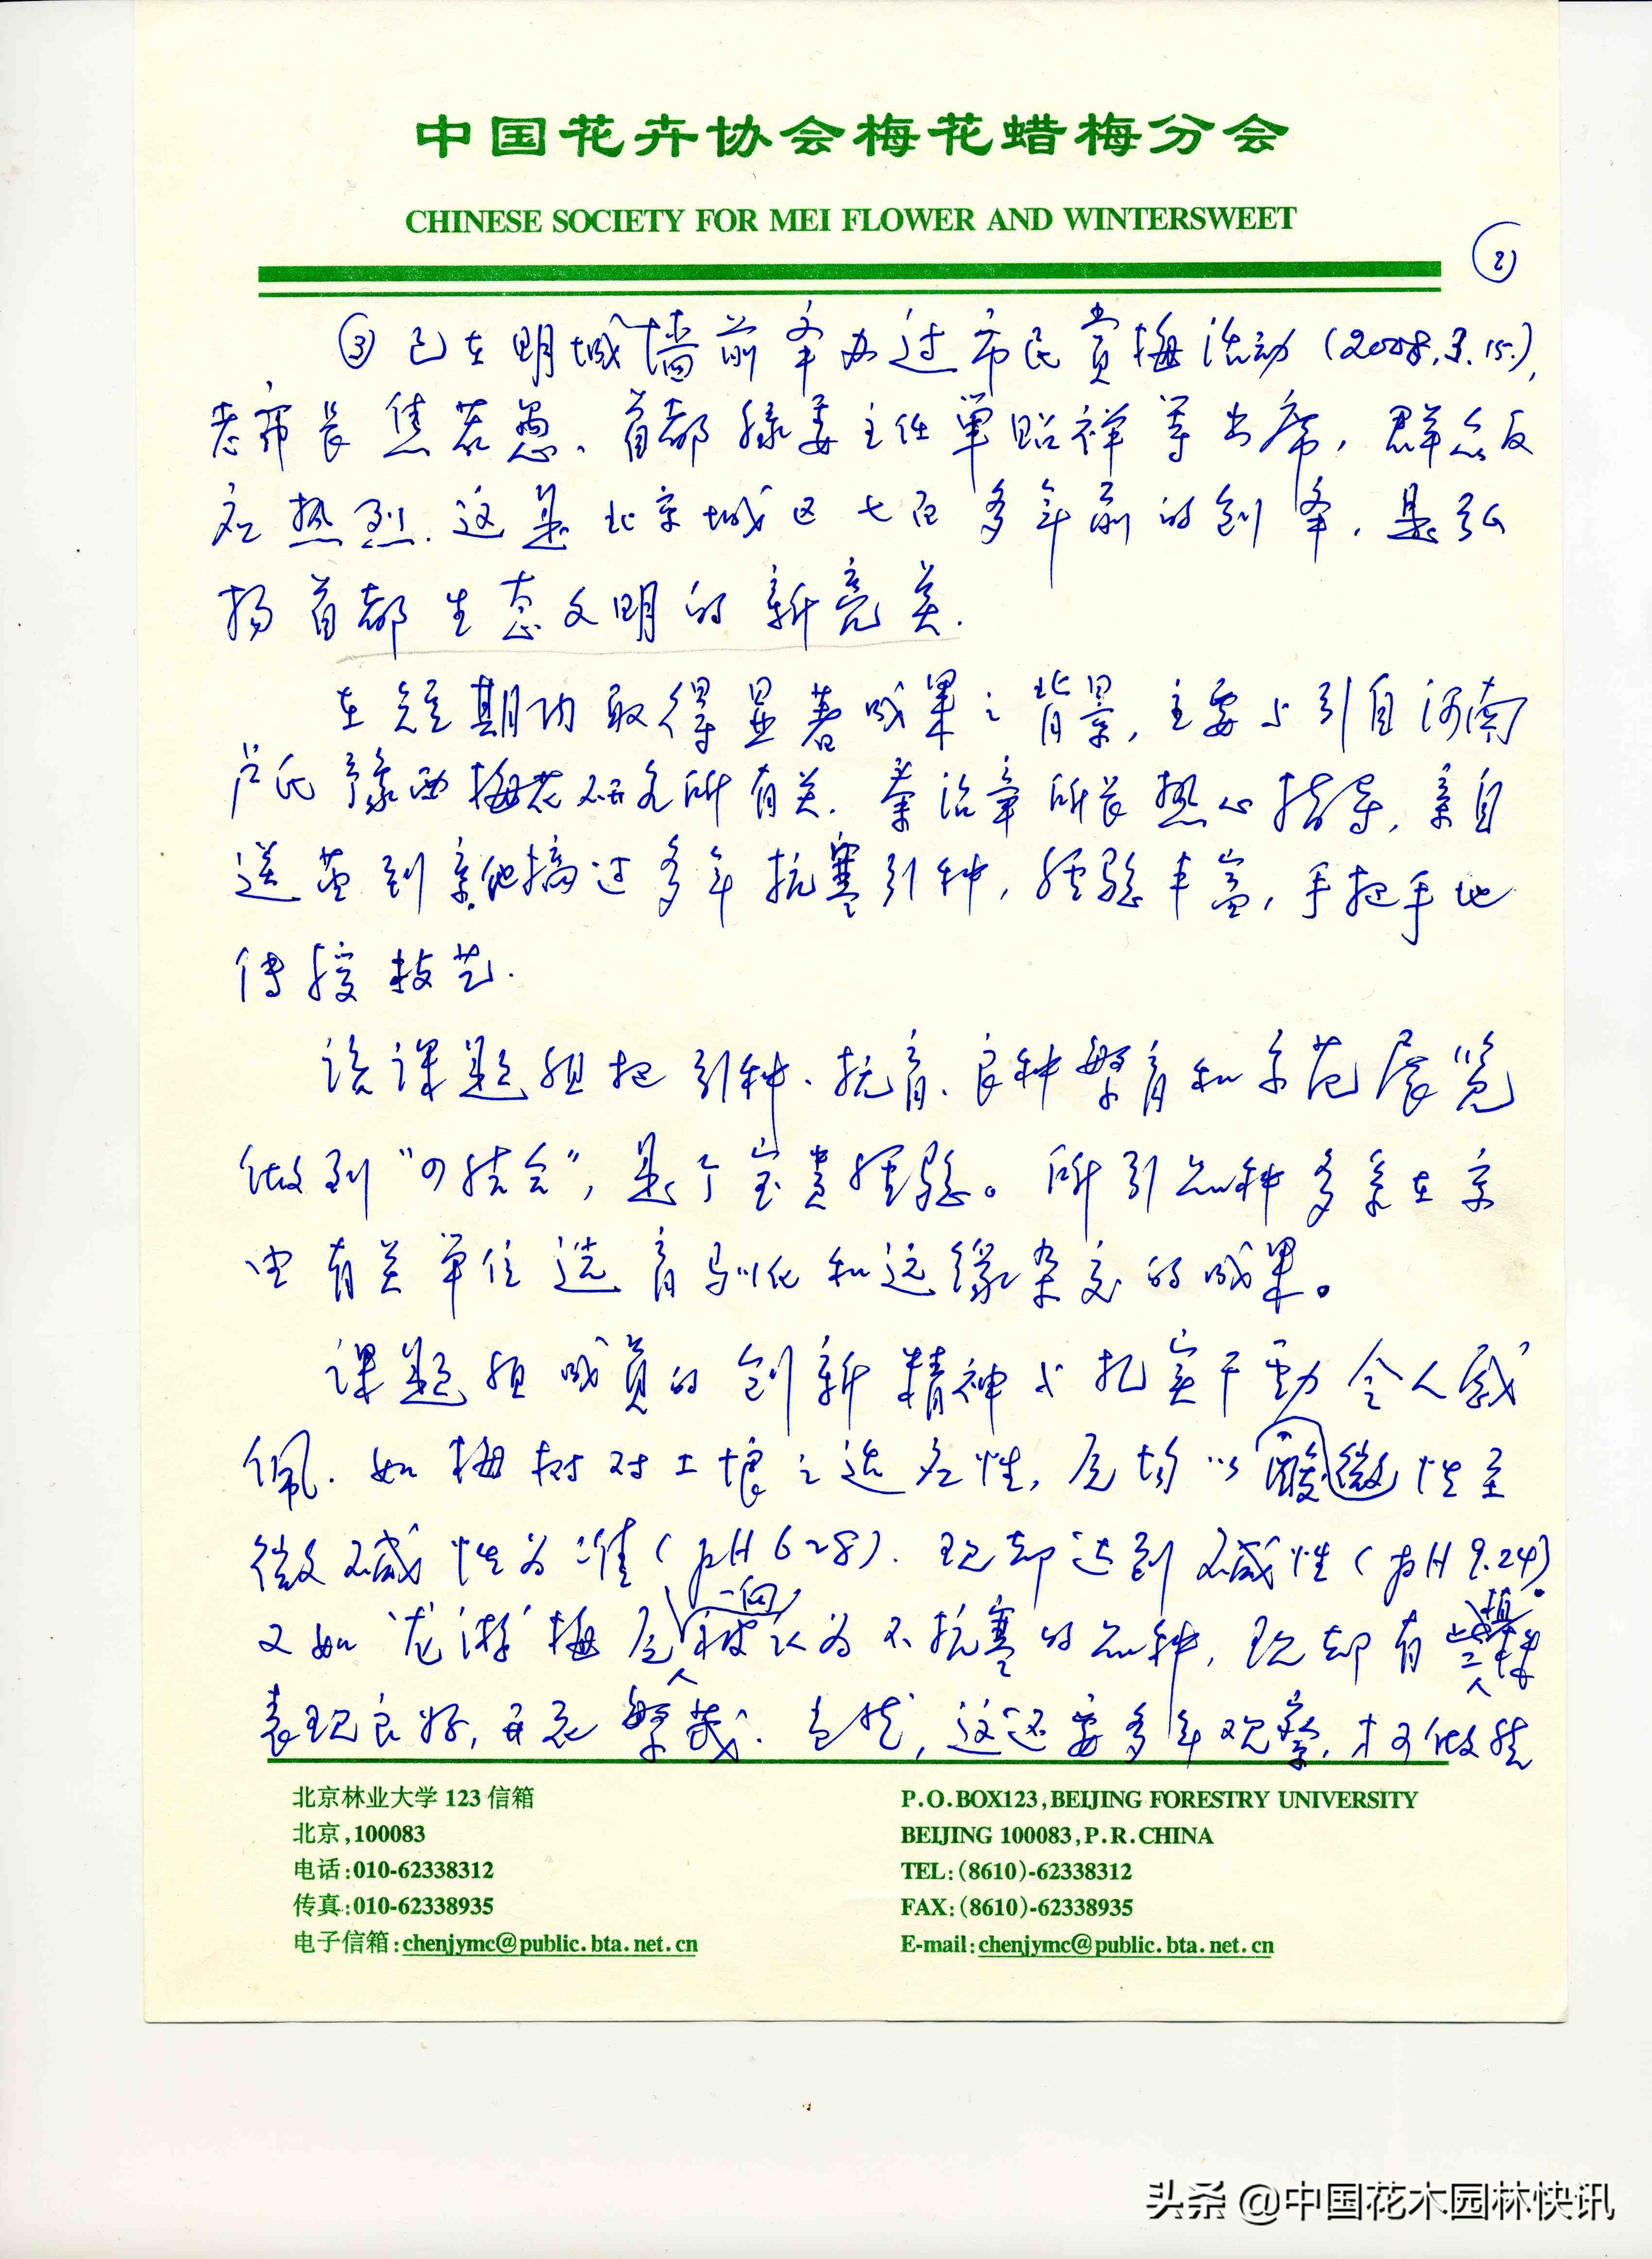 中国花卉协会梅花蜡梅分会
CHINESE SOCIETY FOR MEI FLOWER AND WINTERSWEET
②
③已在明城墙前举办过市民赏梅活动(2008.3.15.),
老市长焦若愚、首都绿委主任单昭祥等出席,群众反
应热烈.这是北京城区七百多年前的创举,是弘
扬首都生态文明的新亮关.
在短期内取得显著成果之背景,主要与引自河南
卢氏豫西梅花研究所有关.秦治章所长热心指导,亲自
送苗到京.他搞过多年抗寒引种,经验丰富,手把手地
传授技艺.
该课题组把引种、抗育、良种繁育和示范展览
做到“四结合”,是个宝贵经验。所引品种多系在京
由有关单位选育驯化和远缘杂交的成果。
课题组成员的创新精神与扎实干劲令人感
佩.如梅树对土壤之适应性,原均以微酸性至
微碱性为准(pH6~8).现却达到碱性(pH9.24).
又如‘龙游’梅原一向被认为不抗寒的品种,现却有
表现良好,开花繁茂.当然,这还要多年观察,才可做结
北京林业大学123信箱
北京,100083
电话:010-62338312
传真:010-62338935
电子信箱:chenjymc@public.bta.net.cn
P.O.BOX123,BEIJING FORESTRY UNIVERSITY
BEIJING 100083,P.R.CHINA
TEL:(8610)-62338312
FAX:(8610)-62338935
E-mail:chenjymc@public.bta.net.cn
头条 @中国花木园林快讯